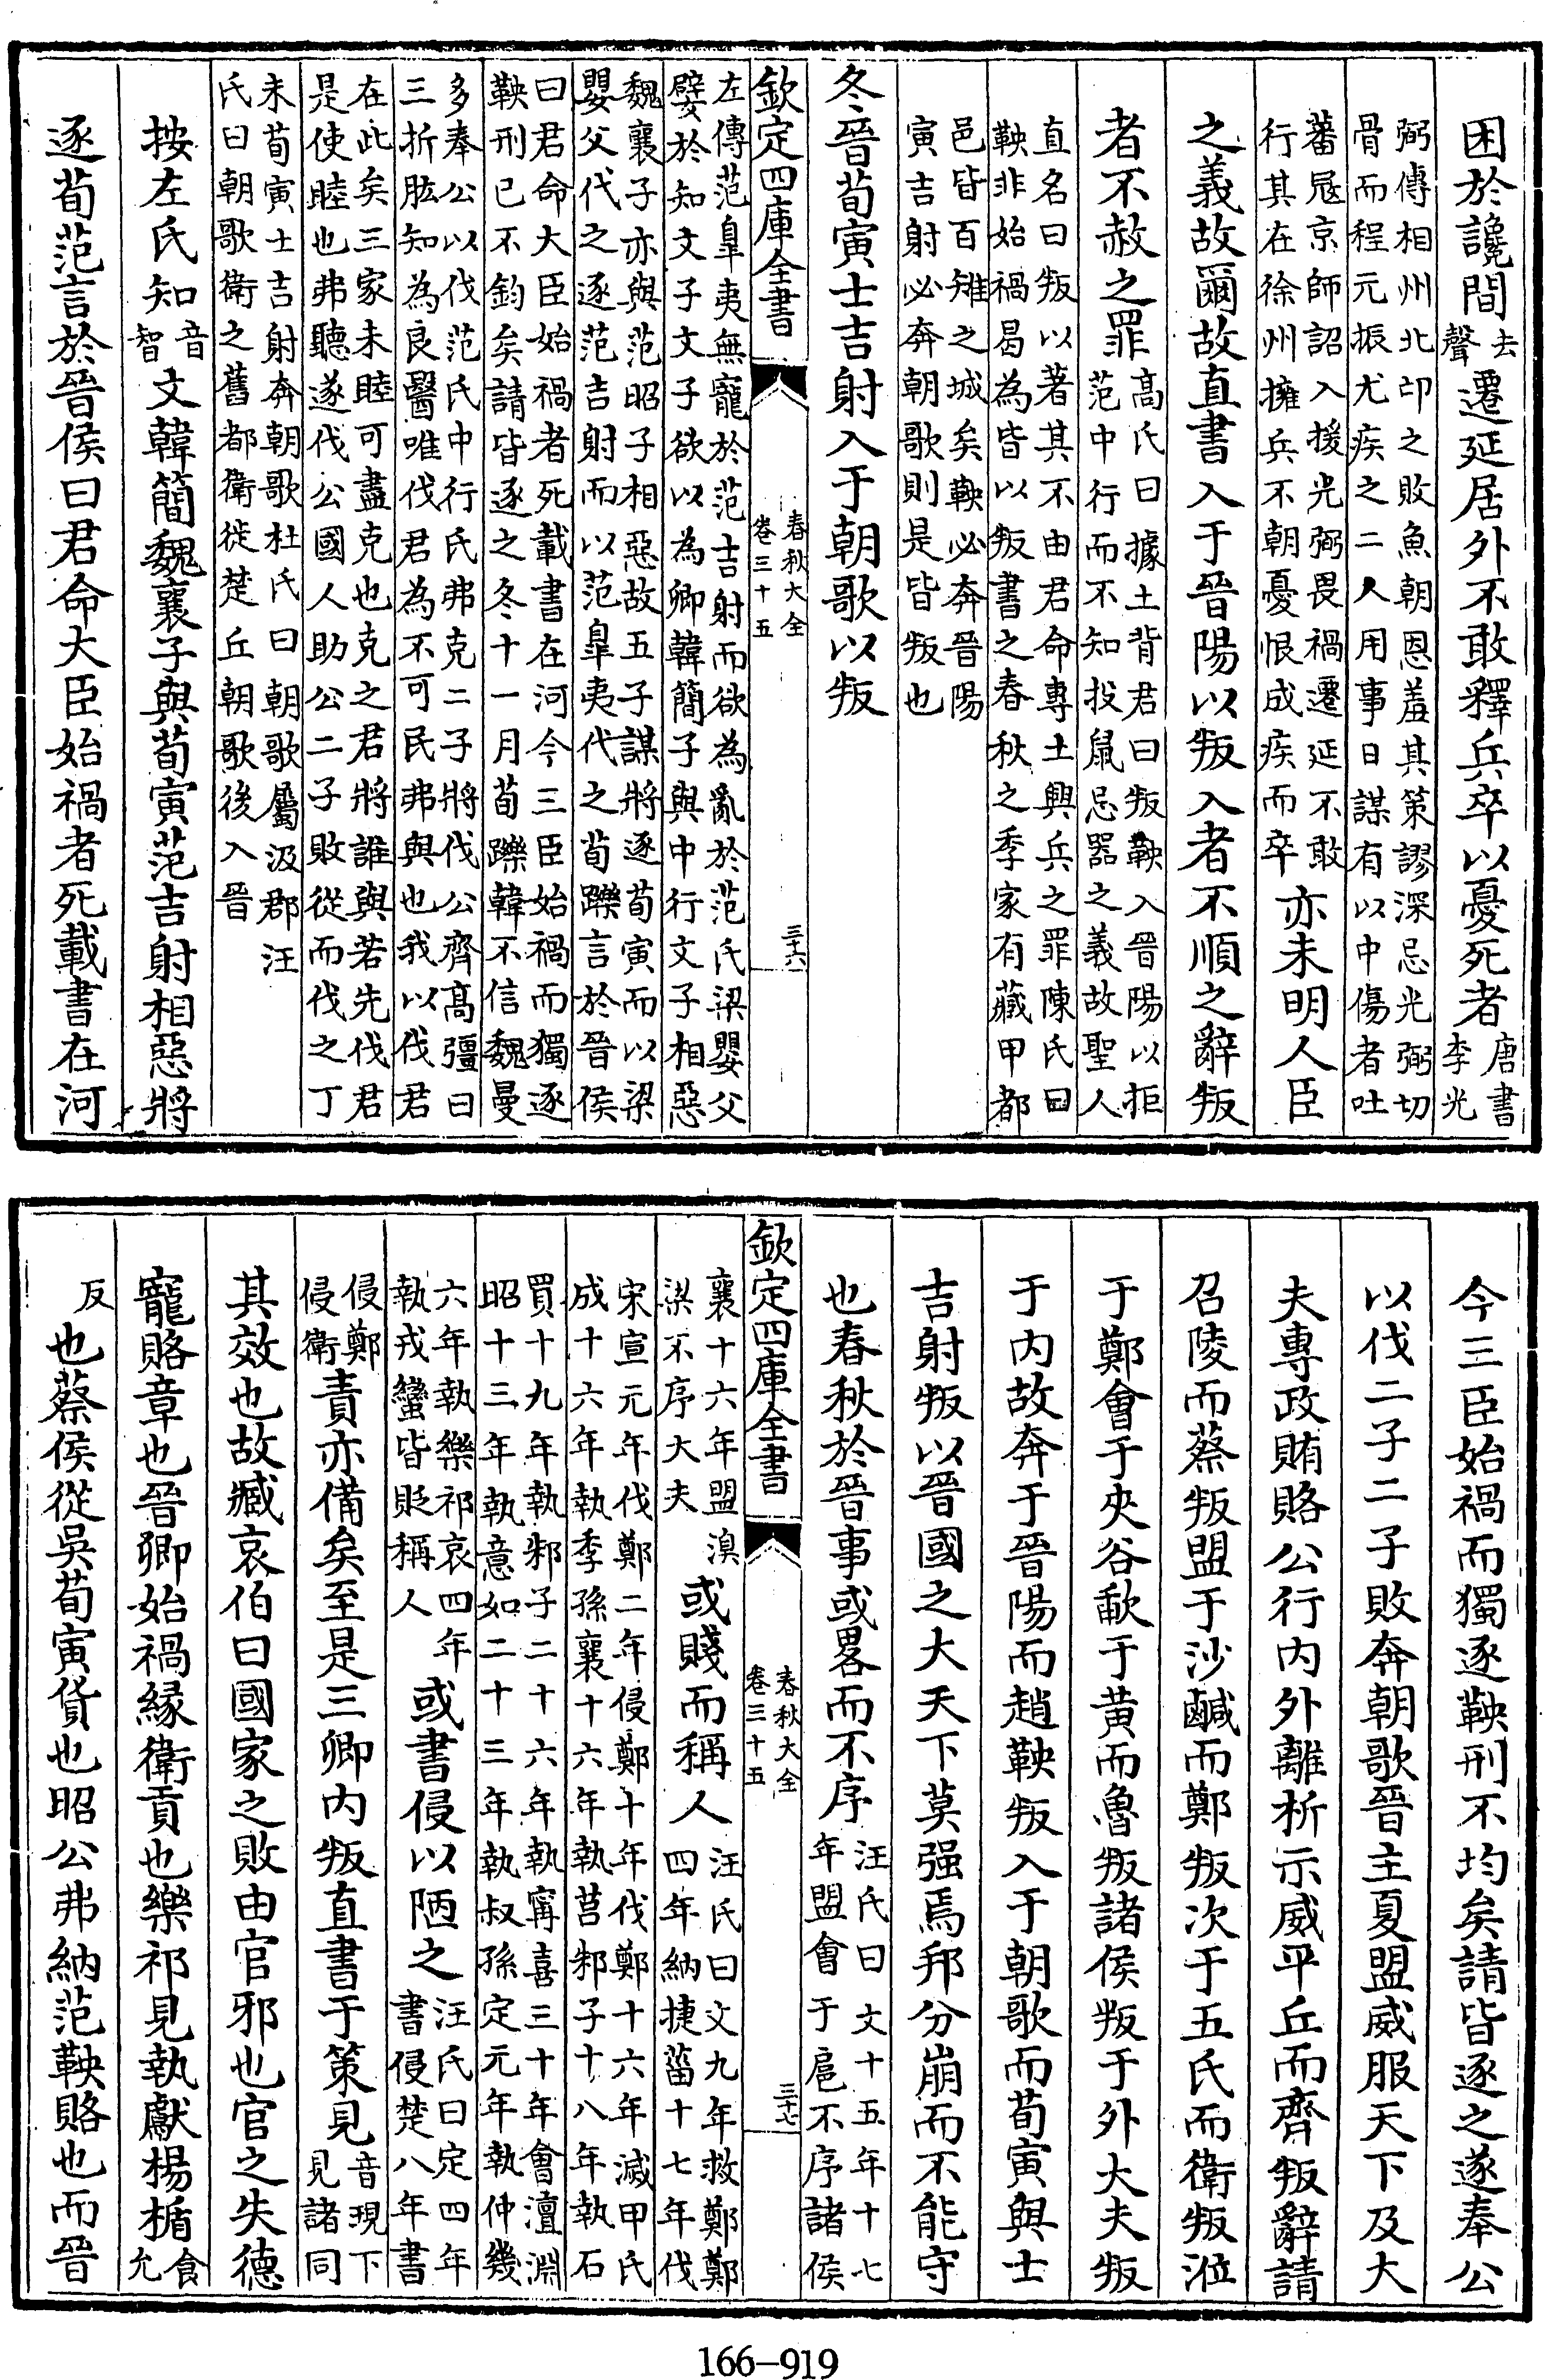 困於讒間去
聲遷延居外不敢釋兵卒以憂死者唐書
李光
弼傳相州北邙之敗魚朝恩羞其策謬深忌光弼切
骨而程元振尤疾之二人用事日謀有以中傷者吐
蕃冦京師詔入援光弼畏禍遷延不敢
行其在徐州擁兵不朝憂恨成疾而卒亦未明人臣
之義故爾故直書入于晉陽以叛入者不順之辭叛
者不赦之罪高氏曰據土背君曰叛鞅入晉陽以拒
范中行而不知投鼠忌器之義故聖人
直名曰叛以著其不由君命專土興兵之罪陳氏曰
鞅非始禍曷為皆以叛書之春秋之季家有藏甲都
邑皆百雉之城矣鞅必奔晉陽
寅吉射必奔朝歌則是皆叛也
冬晉荀寅士吉射入于朝歌以叛
欽定四庫全書
春秋大全
卷三十五
三十六
左傳范臯夷無寵於范吉射而欲為亂於范氏梁嬰父
嬖於知文子文子欲以為卿韓簡子與中行文子相惡
魏襄子亦與范昭子相惡故五子謀將逐荀寅而以梁
嬰父代之逐范吉射而以范臯夷代之荀躒言於晉侯
曰君命大臣始禍者死載書在河今三臣始禍而獨逐
鞅刑已不鈞矣請皆逐之冬十一月荀躒韓不信魏曼
多奉公以伐范氏中行氏弗克二子將伐公齊高彊曰
三折肱知為良醫唯伐君為不可民弗與也我以伐君
在此矣三家未睦可盡克也克之君將誰與若先伐君
是使睦也弗聽遂伐公國人助公二子敗從而伐之丁
未荀寅士吉射奔朝歌杜氏曰朝歌屬汲郡汪
氏曰朝歌衛之舊都衛徙楚丘朝歌後入晉
按左氏知音
智文韓簡魏襄子與荀寅范吉射相惡將
逐荀范言於晉侯曰君命大臣始禍者死載書在河
今三臣始禍而獨逐鞅刑不均矣請皆逐之遂奉公
以伐二子二子敗奔朝歌晉主夏盟威服天下及大
夫專政賄賂公行內外離析示威平丘而齊叛辭請
召陵而蔡叛盟于沙鹹而鄭叛次于五氏而衛叛涖
于鄭會于夾谷歃于黃而魯叛諸侯叛于外大夫叛
于內故奔于晉陽而趙鞅叛入于朝歌而荀寅與士
吉射叛以晉國之大天下莫强焉邦分崩而不能守
也春秋於晉事或畧而不序汪氏曰文十五年十七
年盟會于扈不序諸侯
欽定四庫全書
春秋大全
卷三十五
三十七
襄十六年盟湨
梁不序大夫或賤而稱人汪氏曰文九年救鄭鄭
四年納捷菑十七年伐
宋宣元年伐鄭二年侵鄭十年伐鄭十六年滅甲氏
成十六年執季孫襄十六年執莒邾子十八年執石
買十九年執邾子二十六年執甯喜三十年會澶淵
昭十三年執意如二十三年執叔孫定元年執仲幾
六年執樂祁哀四年
執戎蠻皆貶稱人或書侵以陋之汪氏曰定四年
書侵楚八年書
侵鄭
侵衛責亦備矣至是三卿內叛直書于策見音現下
見諸同
其效也故臧哀伯曰國家之敗由官邪也官之失德
寵賂章也晉卿始禍緣衛貢也樂祁見執獻楊楯食
允
反也蔡侯從吳荀寅貨也昭公弗納范鞅賂也而晉
166-919